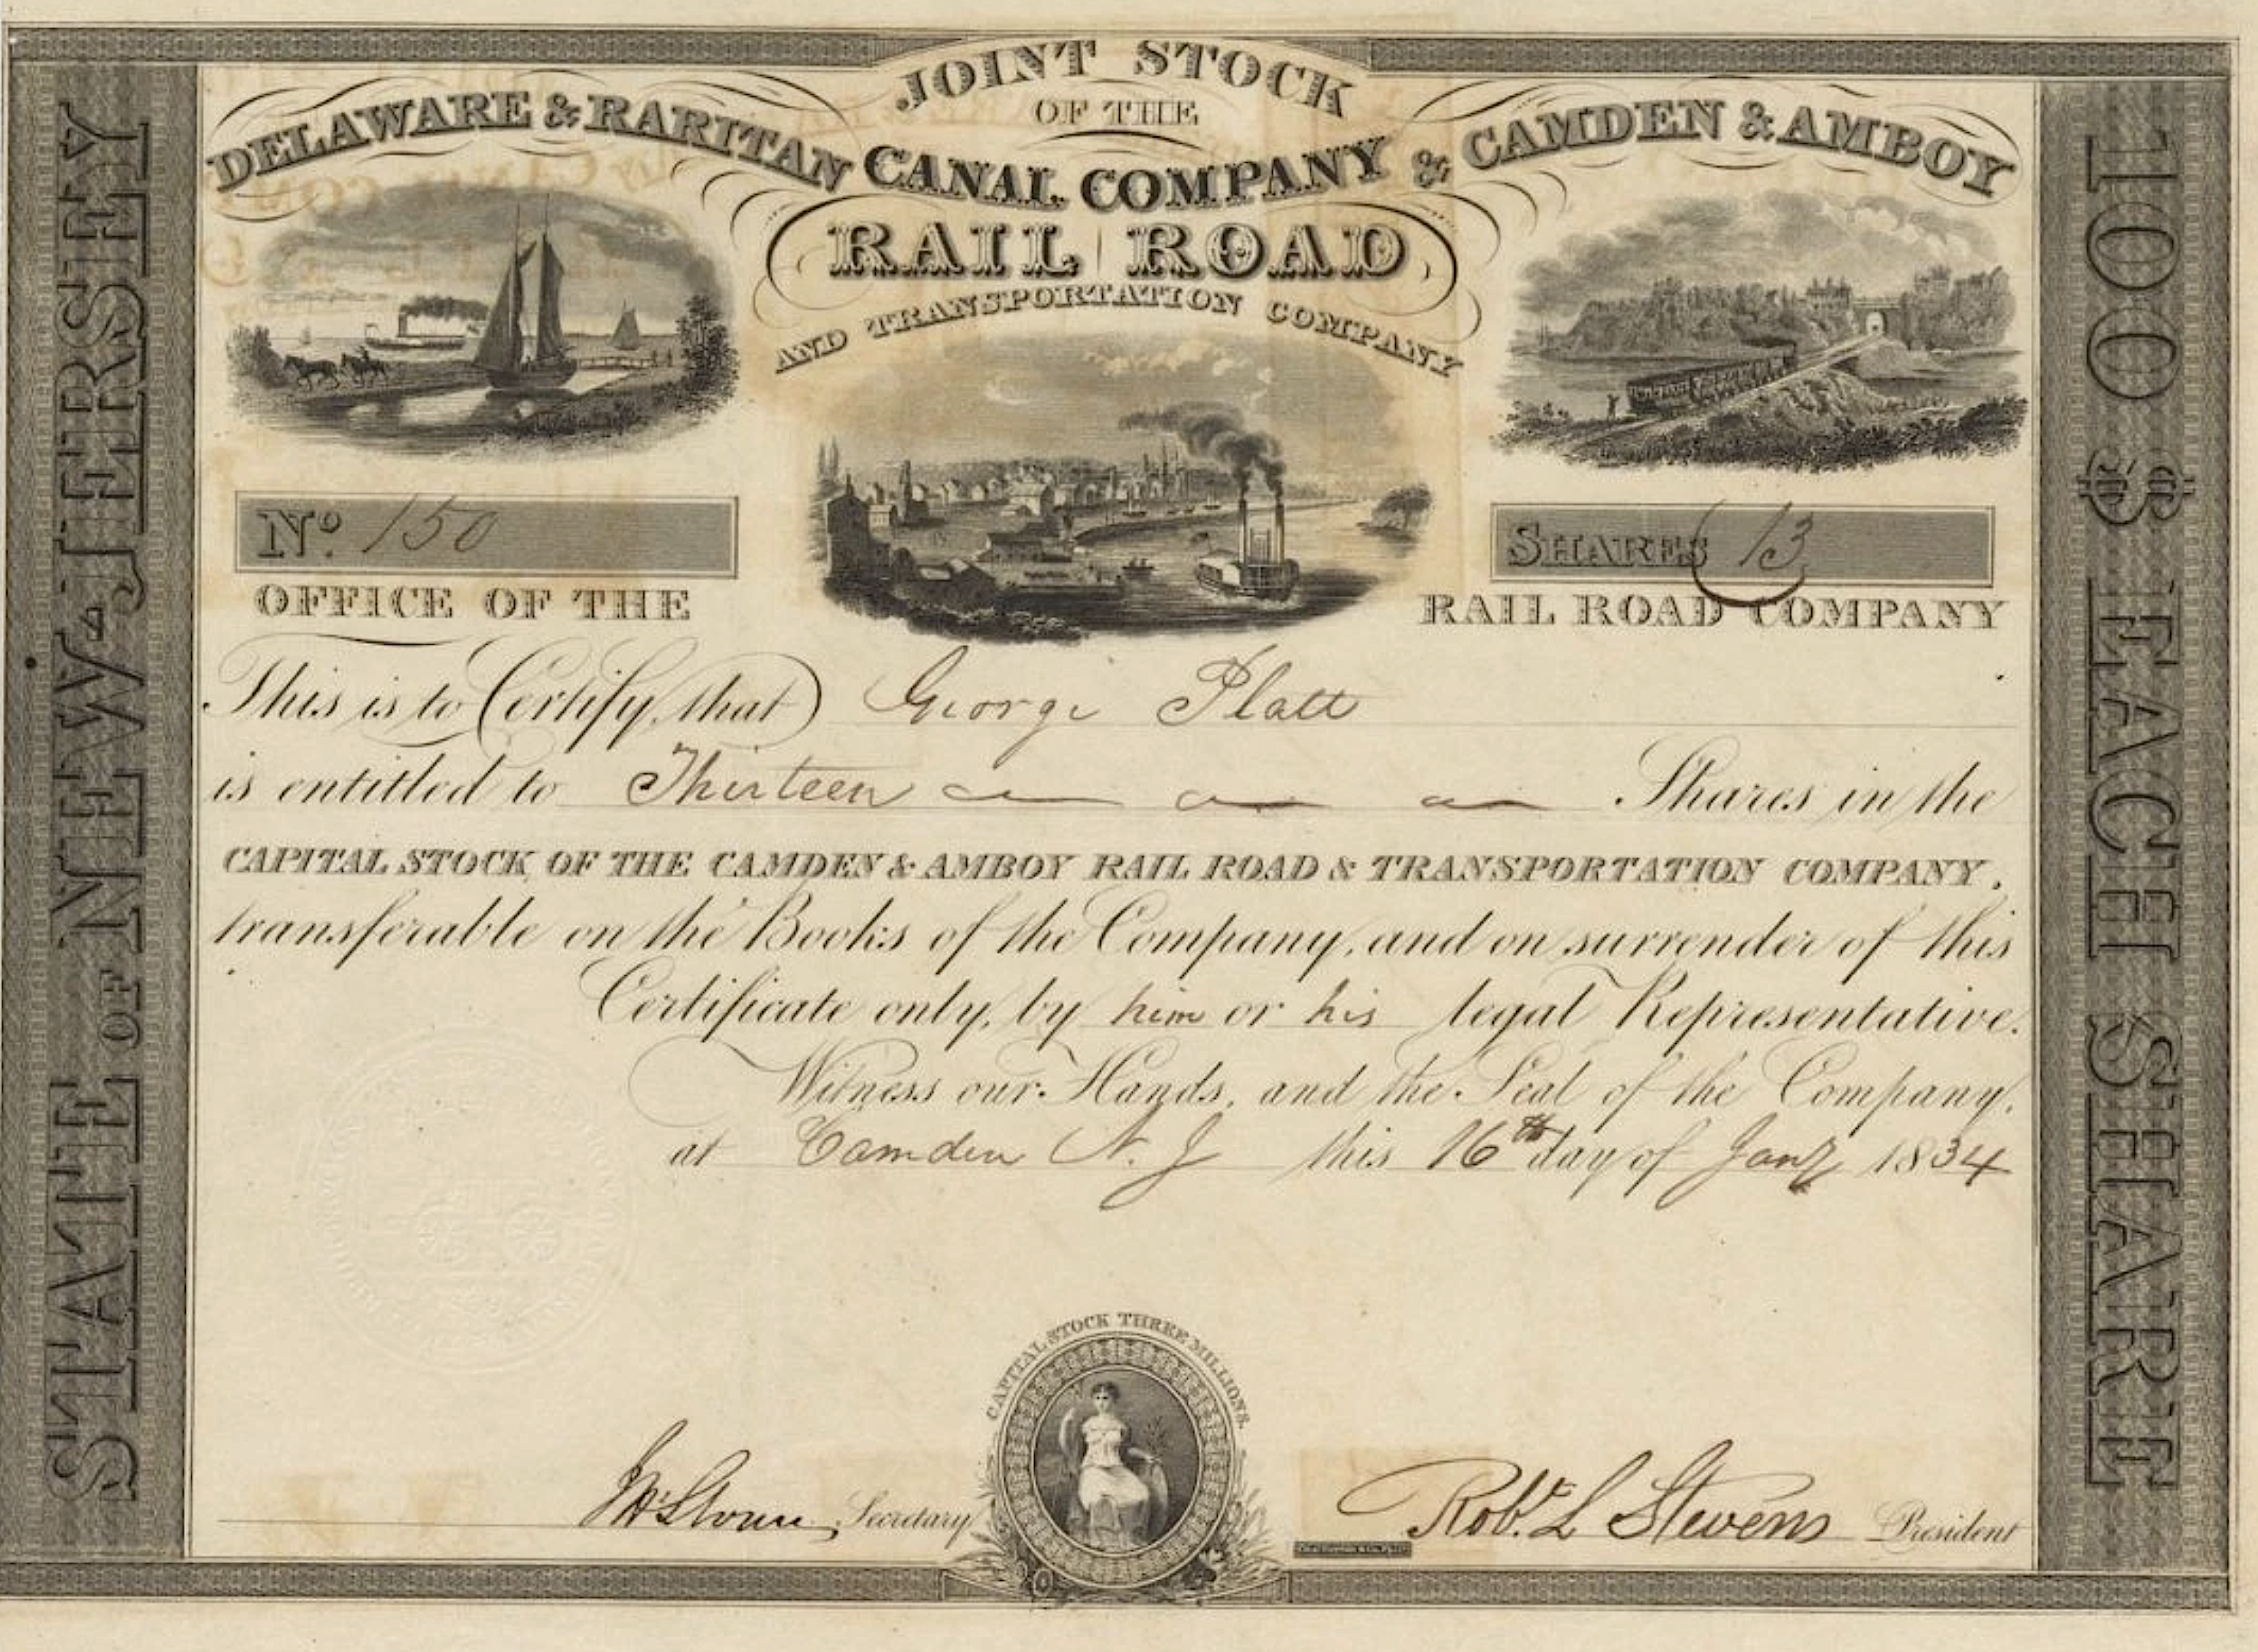 JOINT STOCK
OF THE
DELAWARE & RARITAN CANAL COMPANY & CAMDEN & AMBOY
RAIL ROAD
AND TRANSPORTATION COMPANY
No. 150
SHARES 13
OFFICE OF THE RAIL ROAD COMPANY
This is to Certify, that George Platt
is entitled to Thirteen Shares in the
CAPITAL STOCK OF THE CAMDEN & AMBOY RAIL ROAD & TRANSPORTATION COMPANY,
transferable on the Books of the Company, and on surrender of this
Certificate only, by him or his legal Representative.
Witness our Hands, and the Seal of the Company,
at Camden N. J this 16th day of Jany 1834
CAPITAL STOCK THREE MILLIONS.
Secretary
Robt. L Stevens President
STATE OF NEW-JERSEY
100 $ EACH SHARE